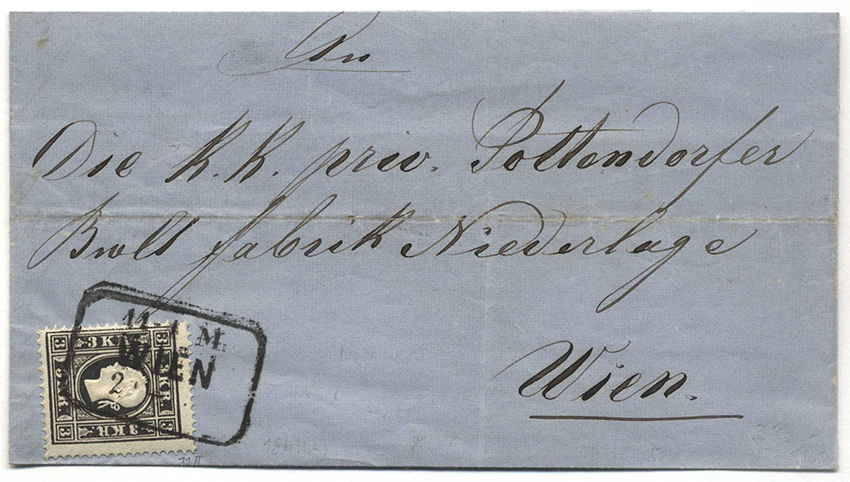 An
Die K. K. priv. Pottendorfer
Bwoll fabrik Niederlage
Wien.
11. M.
WIEN
2.
3 KR.
3 KR.
3 KR.
3 KR.